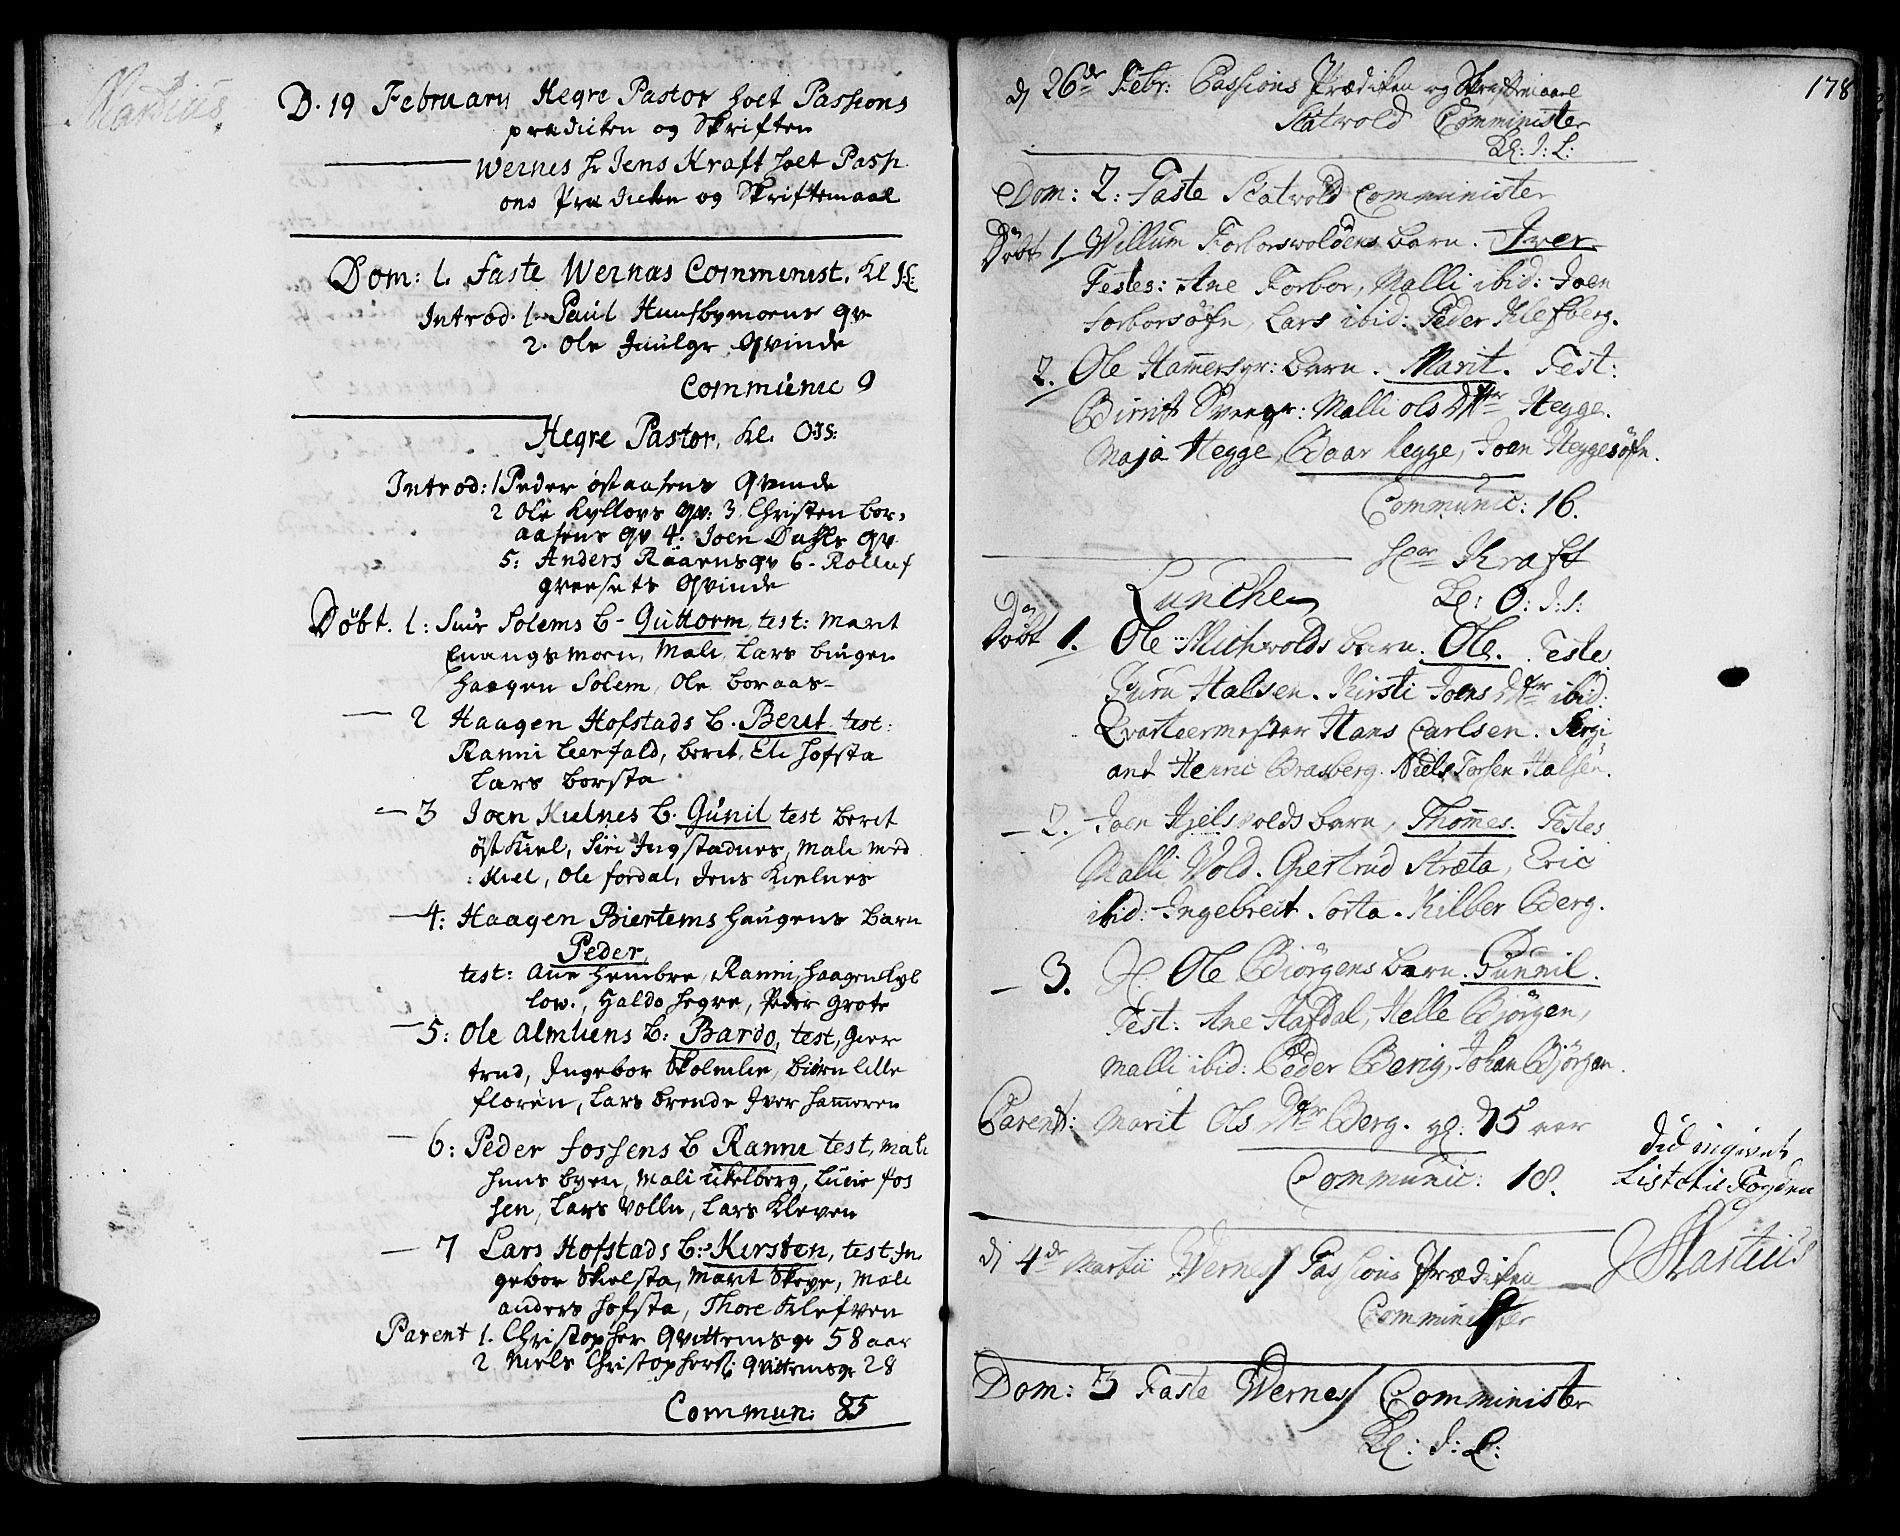 Martius
D. 19 February Hegre Pastor holt Passions
prædicken og Skriften
Wernes hr Jens Kraft holt Passi
ons Prædicken og Skriftemaal
Dom: 1. Faste Wernæs Comminist. Kl
Introd. 1. Paul Hunsbymoens qv
2. Ole Qvinde
Communic 9
Hegre Pastor, Kl. O:I:S:
Introd: 1 Peder østaasens Qvinde
2 Ole Kyllovs qv: 3 Christen bor-
aasens qv 4. Joen Dahls qv
5: Anders Råaens qv 6. Rolluf
græsets Qvinde
Døbt. 1: Siur Solems b. Guttorm, test: Marit
Enangsmoen, Mali, Lars bugen
Haagen Solem, Ole boraas-
2 Haagen Hofstads b. Berit test:
Ranni leerfald, berit, Eli hofsta
Lars borsta
3 Joen Kielnes b. Gunil test berit
østkiel, Siri Ingstadnes, Mali med
kiel, Ole fordal, Jens Kielnes
4: Haagen Biertems haugens barn
Peder,
test: Ane Hembre, Ranni, haagen Kyl
low., Haldo hegre, Peder Grote
5: Ole Almliens b: Bardo, test, Gier
trud, Ingebor Skolmlie, biørn lille
floren, Lars brende Iver hammeren
6: Peder fossens b Ranni test, Mali
huus byen, Mali ukelberg, Lucie fos
sen, Lars Volln, Lars Kleven
7 Lars Hofstads b: Kirsten, test In
gebor Skielsta, Marit Skeye, Mali
anders hofsta, Thore Klefven
Parent 1. Christopher Qvittemsgr 58 aar
2 Niels Christophers: Qvittemsgr 28
Commun: 85
178
dj 26de Febr: Passions Prædiken og Skriftemaal
Skatvold Comminister
Kl: I: L:
Dom: 2: Faste Skatvold Comminister
Døbt 1 Willum Forborswoldens barn. Iver
Testes: Ane Forbor, Malli ibid: Joen
Forborsøhn, Lars ibid: Peder Klefberg.
2. Ole Hamersgr: barn. Marit. Test:
Birrit Sveegr: Malli Ols Dtter Hegge.
Maja Hegge, Baar hegge, Joen Heggesøhn.
Communic: 16.
Hr Kraft
Lunche Kl: O: I: S:
Døbt 1. Ole Michwolds barn. Ole. Testes
Guru Halsen. Kirsti Joens Dtter ibid:
Qvarteermester Hans Carlsen. Sergi
ant Henric Brasberg. Niels Torsen Halsen.
2. Joen Hjelswolds barn, Thomes. Testes
Malli Wold. Giertrud Stræta, Eric
ibid: Ingebreit Sorta. Kilber Berg.
3. Ole Biørgens barn. Gunnil.
Test: Ane Hafdal, Helle Bjørgen,
Malli ibid: Peder Berig, Johan Bjørgen.
Parent: Marit Ols Dtter Berg. gl: 75 aar
Communic: 18.
did ingivet
List til Fogden
dj 4de Martii Wernes Passions Prædiken
Martius
Comminister
Dom: 3 Faste Wernes Comminister
Kl: I: L: